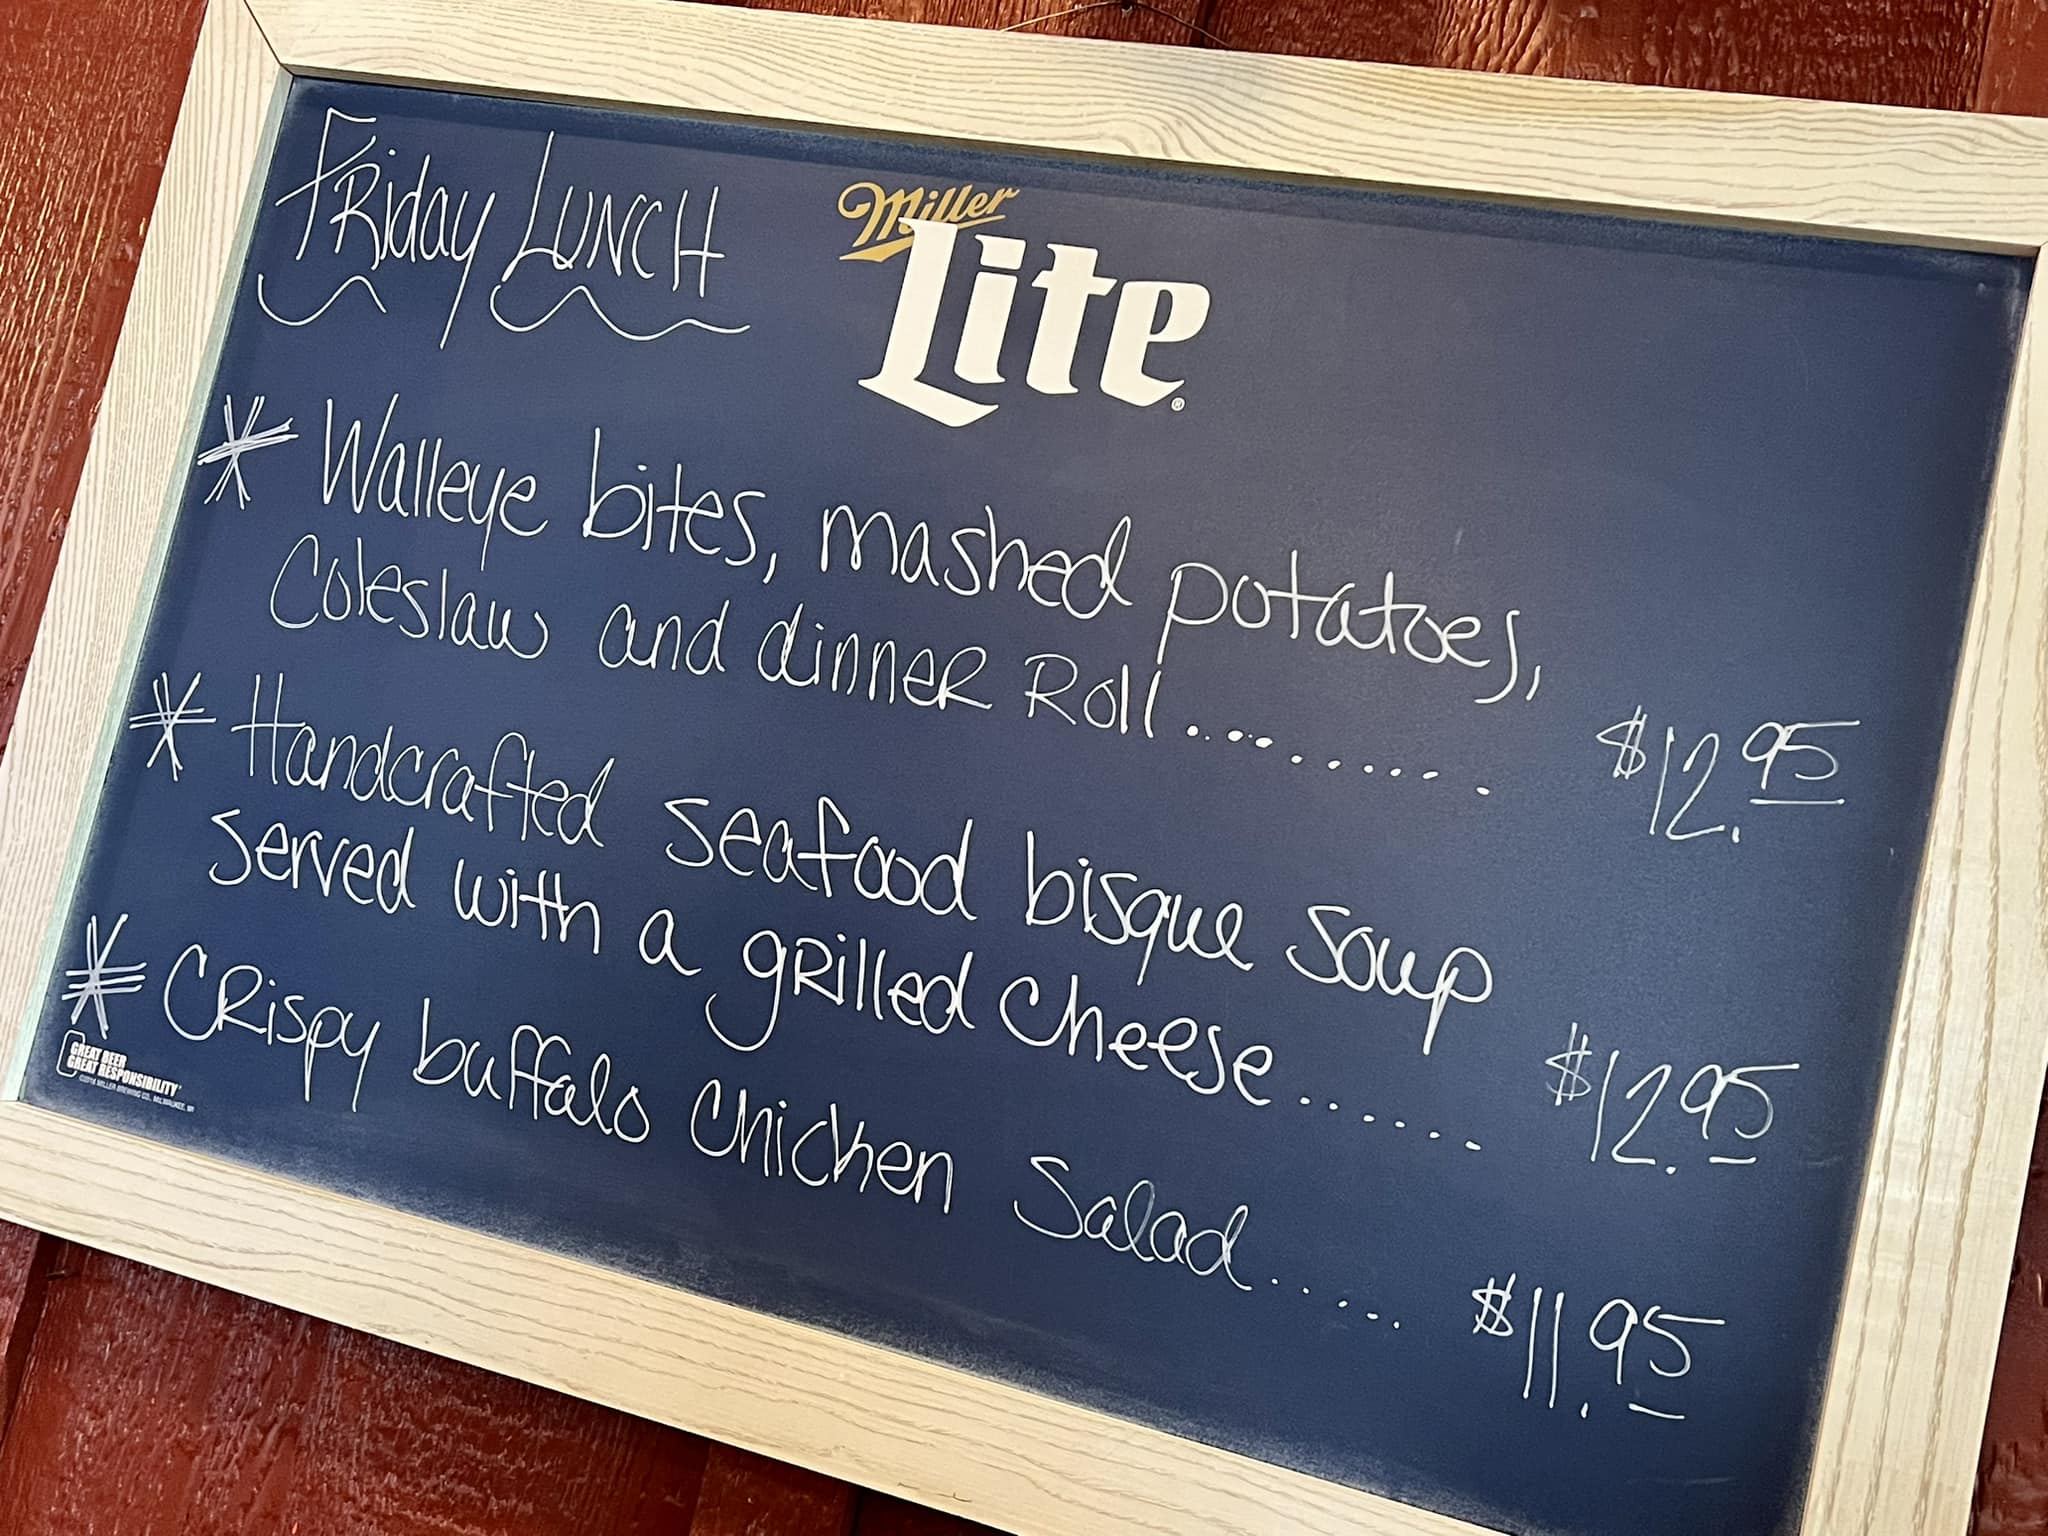 FRiday LUNCH
Miller
Lite®
* Walleye bites, mashed potatoes,
Coleslaw and dinneR Roll............. $12.95
* Handcrafted seafood bisque soup
served with a gRilled cheese...... $12.95
* CRispy buffalo chicken Salad...... $11.95
GREAT BEER
GREAT RESPONSIBILITY®
©2016 MILLER BREWING CO., MILWAUKEE, WI